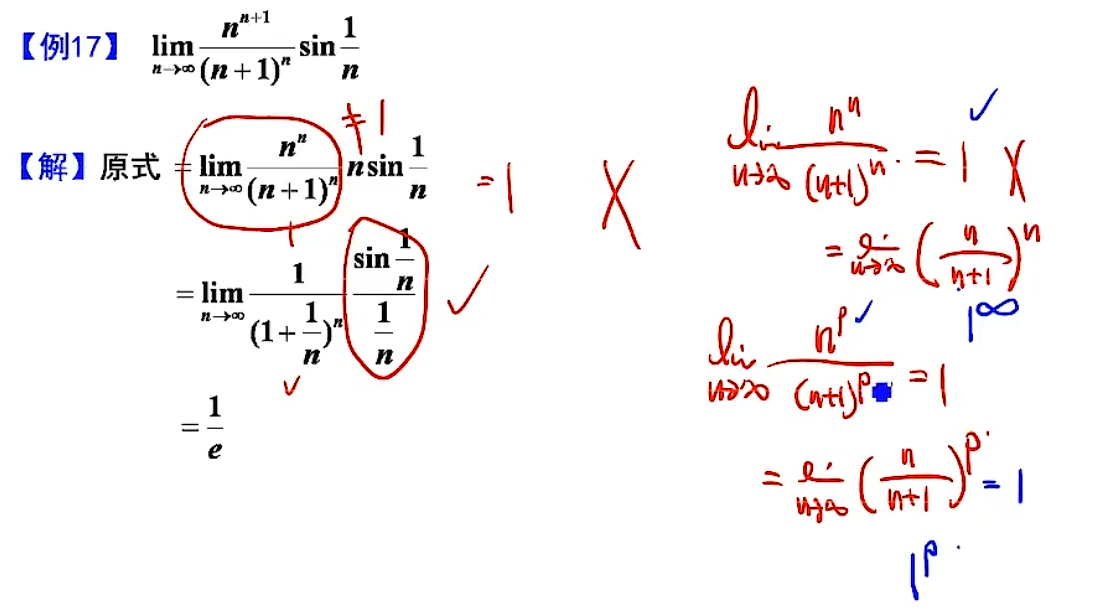 【例17】 lim n→∞ n^{n+1}/(n+1)^n sin 1/n
≠ 1
【解】原式 = lim n→∞ n^n/(n+1)^n n sin 1/n = 1 ×
1
= lim n→∞ 1/(1+1/n)^n (sin 1/n)/(1/n) ✓
✓
= 1/e
lim n→∞ n^n/(n+1)^n = 1 × ✓
= lim n→∞ (n/(n+1))^n
1^∞
lim n→∞ n^p/(n+1)^p = 1 ✓
= lim n→∞ (n/(n+1))^p = 1
1^p